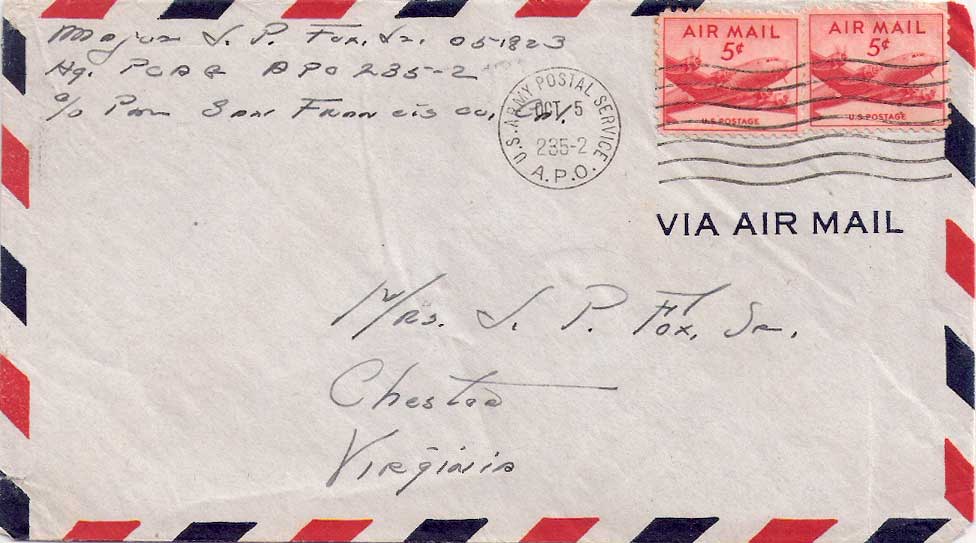 Major J. P. Fox, Jr. 051823
Hq. PCAG APO 235-2
c/o PM San Francisco, Cal.
U.S. ARMY POSTAL SERVICE
OCT 5
235-2
A.P.O.
AIR MAIL
5¢
U.S. POSTAGE
AIR MAIL
5¢
U.S. POSTAGE
VIA AIR MAIL
Mrs. J. P. Fox, Sr.
Chester
Virginia